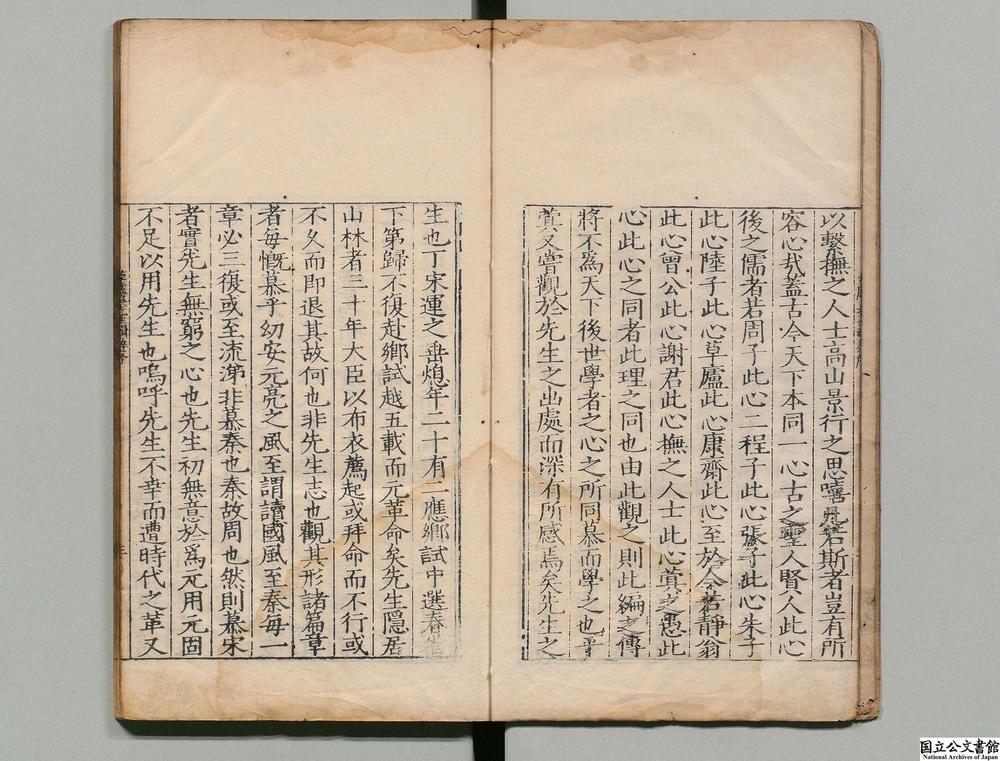 以繫撫之人士高山景行之思噫若斯者豈有所
容心哉蓋古今天下本同一心古之聖人賢人此心
後之儒者若周子此心二程子此心張子此心朱子
此心陸子此心草廬此心康齋此心至於今若靜翁
此心曾公此心謝君此心撫之人士此心之愚此
心此心之同者此理之同也由此觀之則此編之傳
將不爲天下後世學者之心之所同慕而學之也乎
又嘗觀於先生之出處而深有所感焉矣先生之
生也丁宋運之垂熄年二十有二應鄉試中選春
下第歸不復赴鄉試越五載而元革命矣先生隱居
山林者三十年大臣以布衣薦起或拜命而不行或
不久而即退其故何也非先生志也觀其形諸篇章
者每慨慕乎幼安元亮之風至謂讀國風至秦每一
章必三復或至流涕非慕秦也秦故周也然則慕宋
者實先生無窮之心也先生初無意於爲元用元固
不足以用先生也嗚呼先生不幸而遭時代之革又
国立公文書館
National Archives of Japan